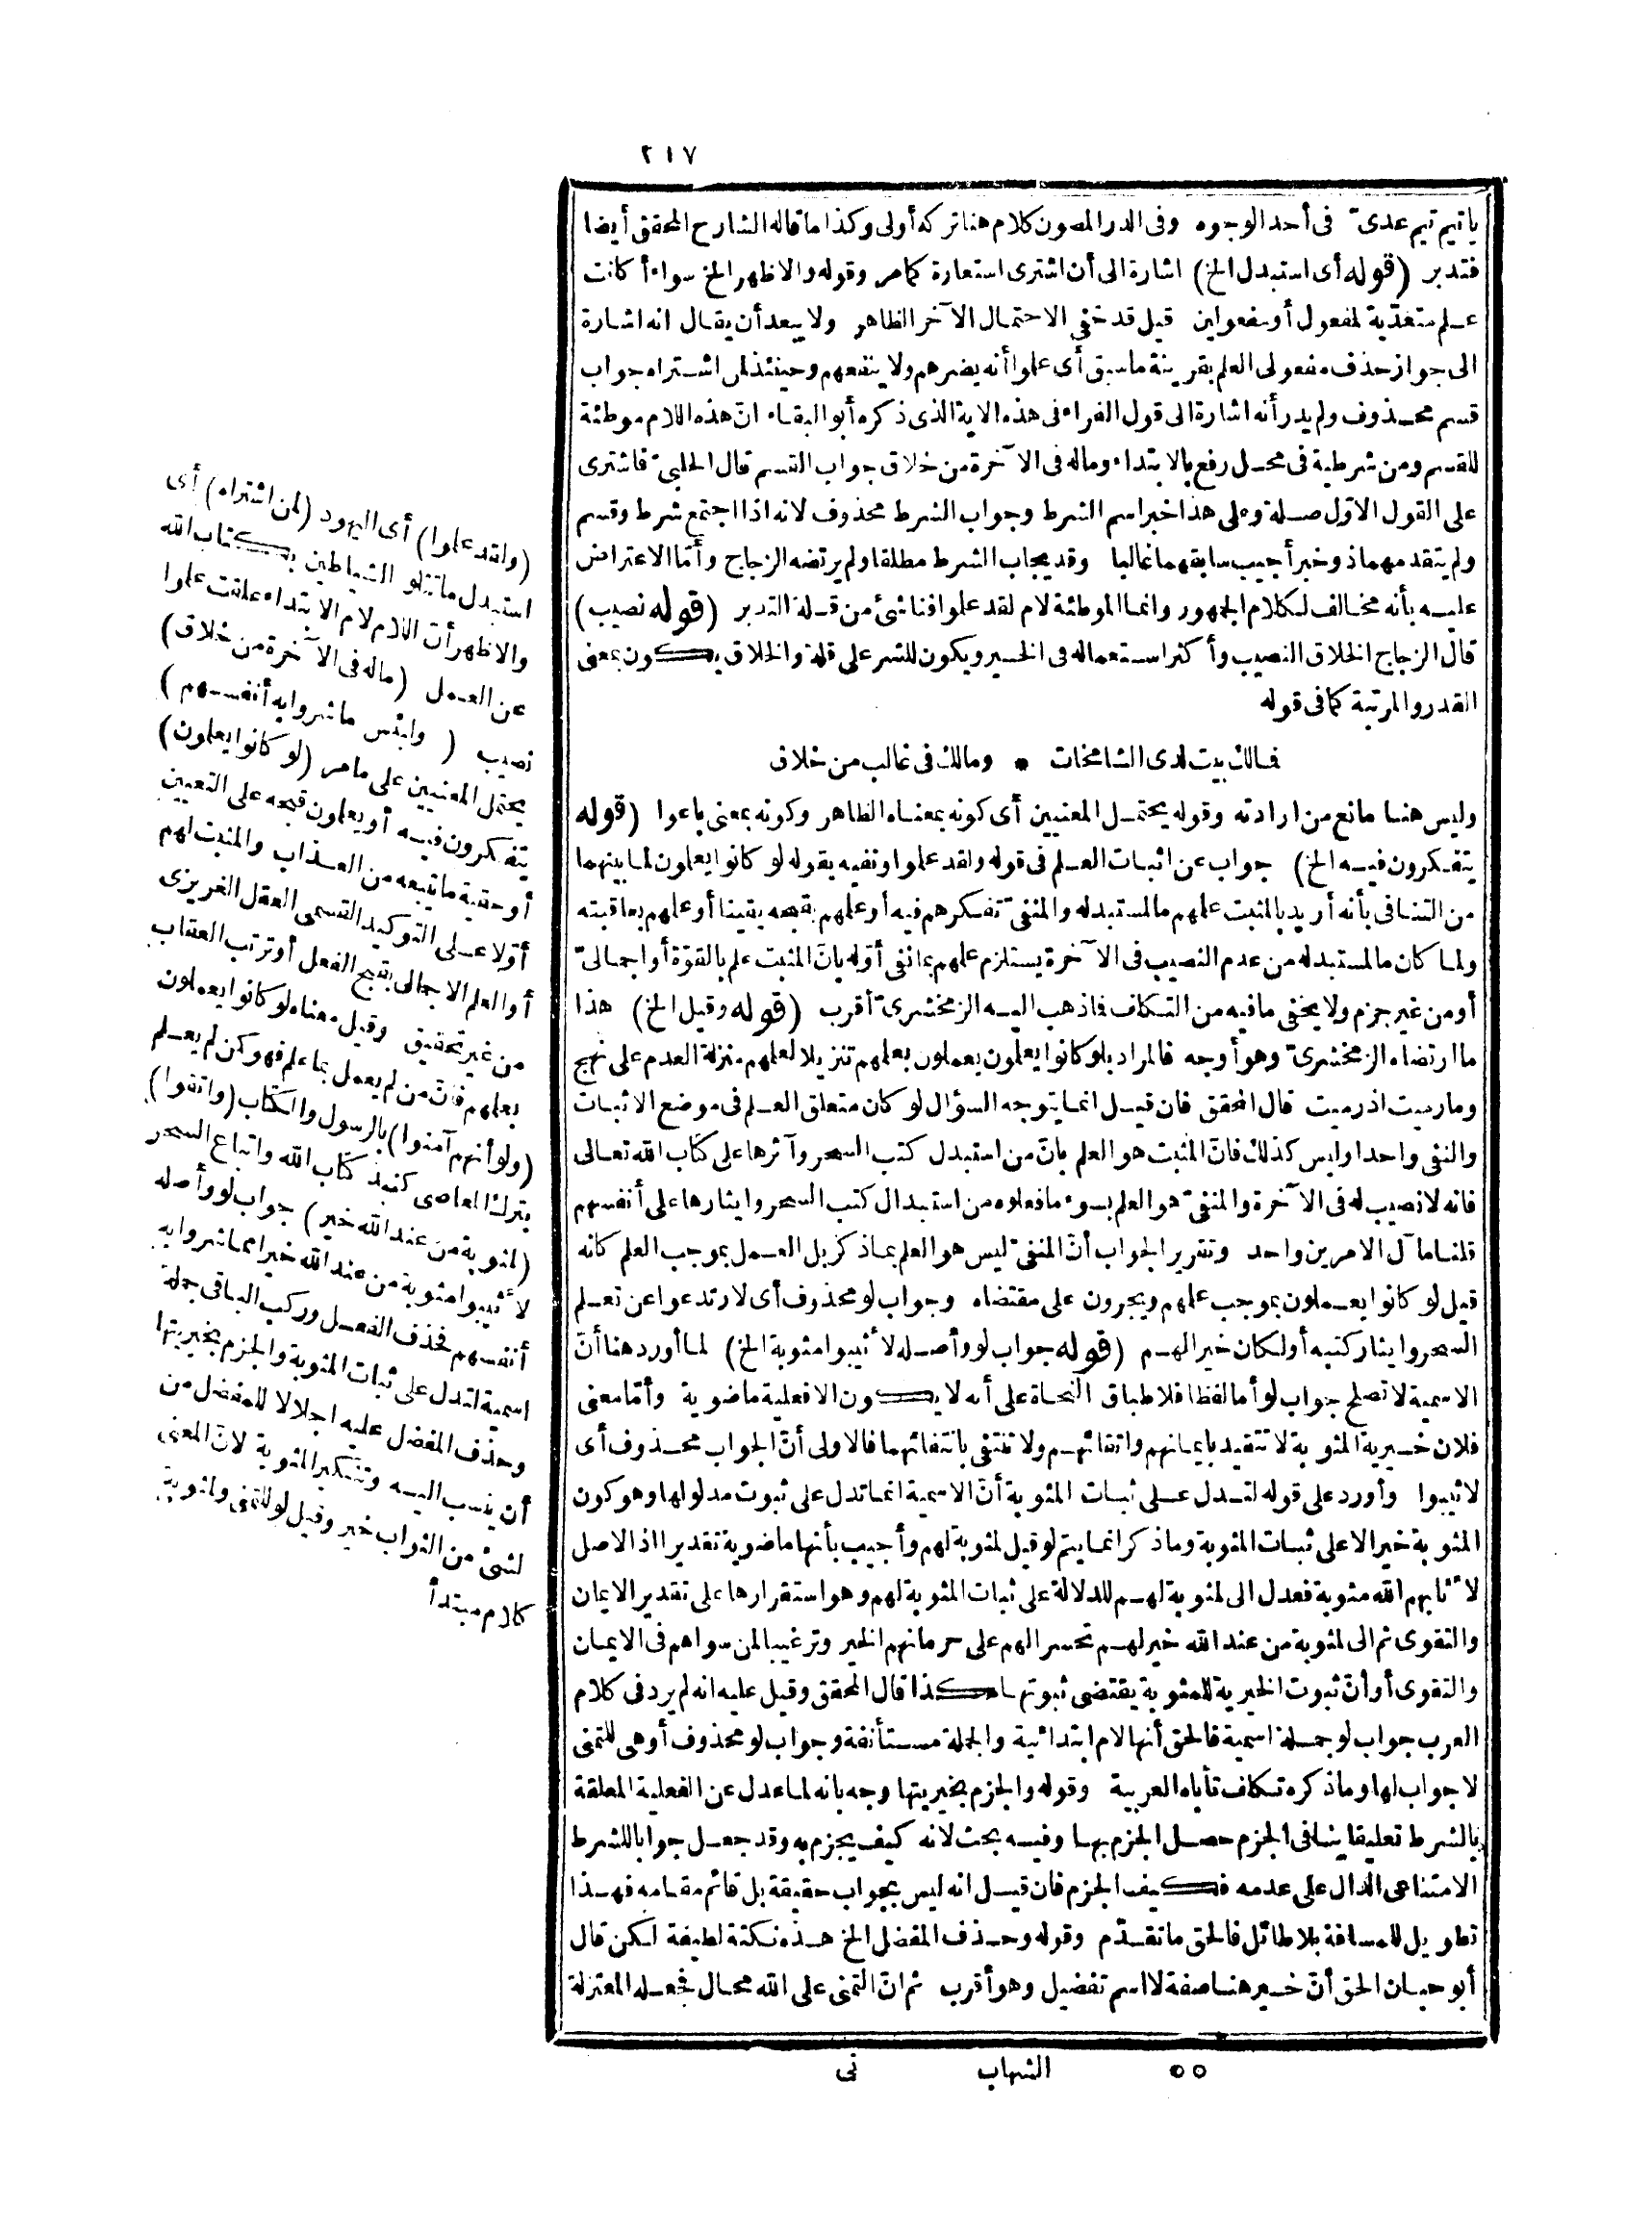 ٢١٧
ياتيم تيم عدىّ فى أحد الوجوه وفى الدر المصون كلام هنا تركه أولى وكذا ما قاله الشارح المحقق أيضا
فتدبر (قوله أى استبدل الخ) اشارة الى أن اشترى استعارة كما مر وقوله والاظهر الخ سواء أ كانت
علم متعدّية لمفعول أو مفعولين قيل قد خفى الاحتمال الآخر الظاهر ولا يبعد أن يقال انه اشارة
الى جواز حذف مفعولى العلم بقرينة ما سبق أى علموا أنه يضرهم ولا ينفعهم وحينئذ لمن اشتراه جواب
قسم محذوف ولم يدر أنه اشارة الى قول الفراء فى هذه الاية الذى ذكره أبو البقاء انّ هذه اللام موطئة
للقسم ومن شرطية فى محل رفع بالابتداء وماله فى الآخرة من خلاق جواب القسم قال الحلبىّ فاشترى
على القول الاوّل صلة وعلى هذا خبر اسم الشرط وجواب الشرط محذوف لانه اذا اجتمع شرط وقسم
ولم يتقدمهما ذو خبر أجيب سابقهما غالبا وقد يجاب الشرط مطلقا ولم يرتضه الزجاج وأمّا الاعتراض
عليه بأنه مخالف لكلام الجمهور وانما الموطئة لام لقد علموا فناشئ من قلة التدبر (قوله نصيب)
قال الزجاج الخلاق النصيب وأكثر استعماله فى الخير ويكون للشر على قلة والخلاق يكون بمعنى
القدر والمرتبة كما فى قوله
فمالك بيت لدى الشامخات * ومالك فى غالب من خلاق
وليس هنا مانع من ارادته وقوله يحتمل المعنيين أى كونه بمعناه الظاهر وكونه بمعنى باعوا (قوله
يتفكرون فيه الخ) جواب عن اثبات العلم فى قوله ولقد علموا ونفيه بقوله لو كانوا يعلمون لما بينهما
من التنافى بأنه أريد بالمثبت علمهم ما لمستبدله والمنفىّ تفكرهم فيه أو علمهم بقبحه يقينا أو علمهم بعاقبته
ولما كان ما لمستبدله من عدم النصيب فى الآخرة يستلزم علمهم بما نفى أوّله بانّ المثبت علم بالقوّة أو اجمالىّ
أو من غير جزم ولا يخفى ما فيه من التكلف فما ذهب اليه الزمخشرىّ أقرب (قوله وقيل الخ) هذا
ما ارتضاه الزمخشرىّ وهو أوجه فالمراد بلو كانوا يعلمون يعملون بعلمهم تنزيلا لعلمهم منزلة العدم على نهج
وما رميت اذ رميت قال المحقق فان قيل انما يتوجه السؤال لو كان متعلق العلم فى موضع الاثبات
والنفى واحدا وليس كذلك فانّ المثبت هو العلم بانّ من استبدل كتب السحر وآثرها على كتاب الله تعالى
فانه لا نصيب له فى الآخرة والمنفىّ هو العلم بسوء ما فعلوه من استبدال كتب السحر وايثارها على أنفسهم
قلنا مآل الامرين واحد وتقرير الجواب أنّ المنفىّ ليس هو العلم بما ذكر بل العمل بموجب العلم كأنه
قيل لو كانوا يعملون بموجب علمهم ويجرون على مقتضاه وجواب لو محذوف أى لارتدعوا عن تعلم
السحر وايثار كتبه أو لكان خيرا لهم (قوله جواب لو وأصله لأثيبوا مثوبة الخ) لما أورد هنا أنّ
الاسمية لا تصلح جواب لو أما لفظا فلاطباق النحاة على أنه لا يكون الا فعلية ماضوية وأمّا معنى
فلان خيرية المثوبة لا تتقيد بايمانهم واتقائهم ولا تنتفى بانتفائهما فالاولى أنّ الجواب محذوف أى
لاثيبوا وأورد على قوله لتدل على ثبات المثوبة أنّ الاسمية انما تدل على ثبوت مدلولها وهو كون
المثوبة خيرا لا على ثبات المثوبة وما ذكر انما يتم لو قيل لمثوبة لهم وأجيب بأنها ماضوية تقديرا اذ الاصل
لأثابهم الله مثوبة فعدل الى لمثوبة لهم للدلالة على ثبات المثوبة لهم وهو استقرارها على تقدير الايمان
والتقوى ثم الى لمثوبة من عند الله خير لهم تحسيرا لهم على حرمانهم الخير وترغيبا لمن سواهم فى الايمان
والتقوى أو أنّ ثبوت الخيرية للمثوبة يقتضى ثبوتها هكذا قال المحقق وقيل عليه انه لم يرد فى كلام
العرب جواب لو جملة اسمية فالحق أنها لام ابتدائية والجملة مستأنفة وجواب لو محذوف أو هى للتمنى
لا جواب لها وما ذكره تكلف تأباه العربية وقوله والجزم بخيريتها وجه بانه لما عدل عن الفعلية المعلقة
بالشرط تعليقا ينافى الجزم حصل الجزم بها وفيه بحث لانه كيف يجزم به وقد جعل جوابا للشرط
الامتناعى الدال على عدمه فكيف الجزم فان قيل انه ليس بجواب حقيقة بل قائم مقامه فهذا
تطويل للمسافة بلا طائل فالحق ما تقدّم وقوله وحذف المفضل الخ هذه نكتة لطيفة لكن قال
أبو حيان الحق أنّ خير هنا صفة لا اسم تفضيل وهو أقرب ثم انّ التمنى على الله محال فجعله المعتزلة
(ولقد علموا) أى اليهود (لمن اشتراه) أى
استبدل ما تتلو الشياطين بكتاب الله
والاظهر أنّ اللام لام الابتداء علقت علموا
عن العمل (ماله فى الآخرة من خلاق)
نصيب (ولبئس ما شروا به أنفسهم)
يحتمل المعنيين على ما مر (لو كانوا يعلمون)
يتفكرون فيه أو يعلمون قبحه على التعيين
أو حقية ما يتبعه من العذاب والمثبت لهم
أوّلا على التوكيد القسمى العقل الغريزى
أو العلم الاجمالى بقبح الفعل أو ترتب العقاب
من غير تحقيق وقيل معناه لو كانوا يعملون
بعلمهم فانّ من لم يعمل بما علم فهو كمن لم يعلم
(ولو أنهم آمنوا) بالرسول والكتاب (واتقوا)
بترك المعاصى كنبذ كتاب الله واتباع السحر
(لمثوبة من عند الله خير) جواب لو وأصله
لأثيبوا مثوبة من عند الله خيرا مما شروا به
أنفسهم فحذف الفعل وركب الباقى جملة
اسمية لتدل على ثبات المثوبة والجزم بخيريتها
وحذف المفضل عليه اجلالا للمفضل من
أن ينسب اليه وتنكير المثوبة لانّ المعنى
لشئ من الثواب خير وقيل لو للتمنى ولمثوبة
كلام مبتدأ
٥٥ الشهاب نى